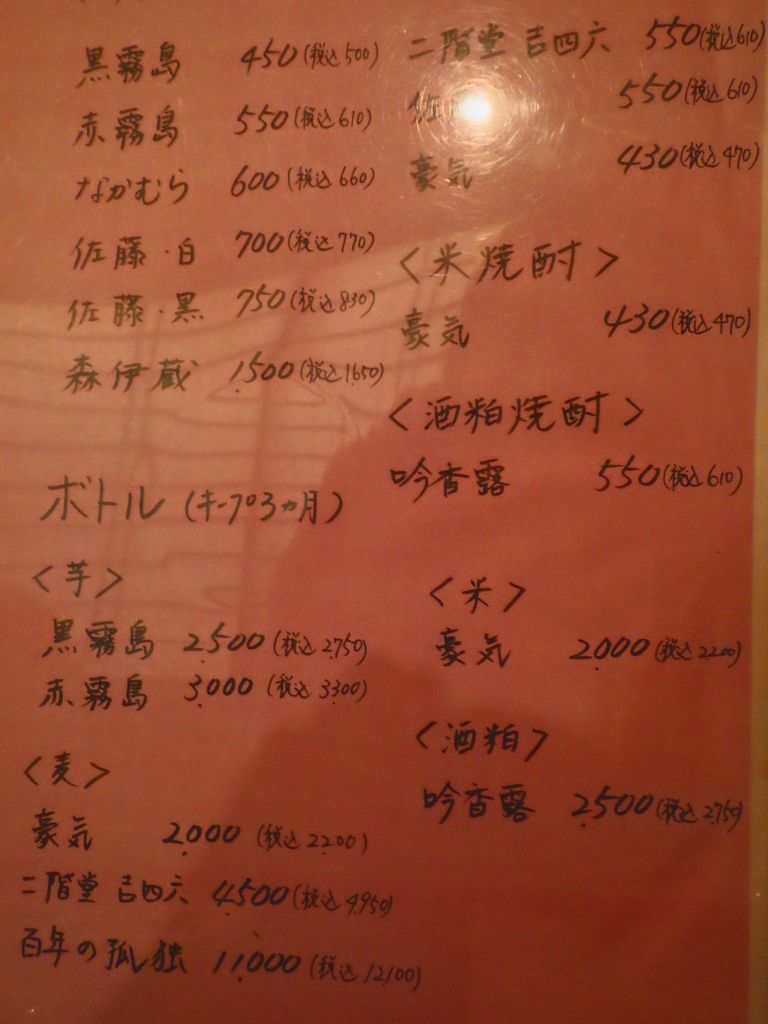 黒霧島 450(税込500)
赤霧島 550(税込610)
なかむら 600(税込660)
佐藤・白 700(税込770)
佐藤・黒 750(税込830)
森伊蔵 1,500(税込1,650)
ボトル(キープ3ヵ月)
<芋>
黒霧島 2,500(税込2,750)
赤霧島 3,000(税込3,300)
<麦>
豪気 2,000(税込2,200)
二階堂 吉四六 4,500(税込4,950)
百年の孤独 11,000(税込12,100)
二階堂 吉四六 550(税込610)
佐 550(税込610)
豪気 430(税込470)
<米焼酎>
豪気 430(税込470)
<酒粕焼酎>
吟香露 550(税込610)
<米>
豪気 2,000(税込2,200)
<酒粕>
吟香露 2,500(税込2,750)